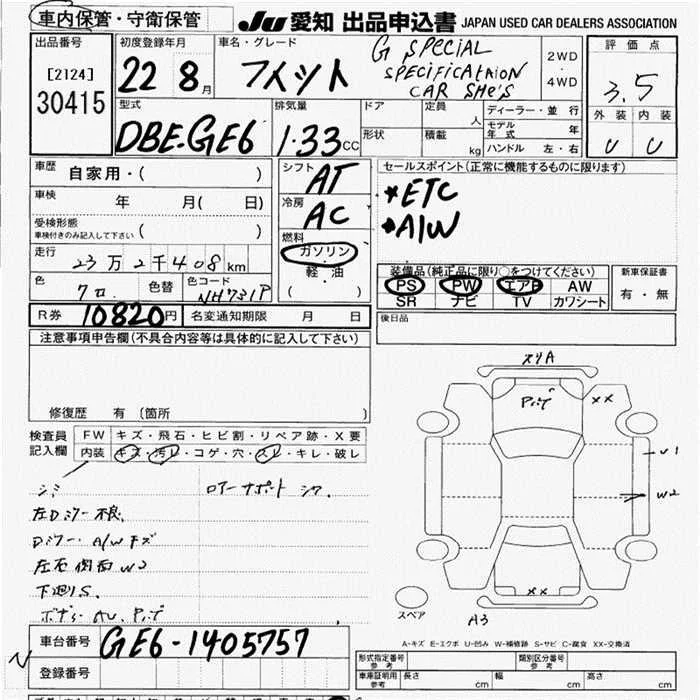 車内保管・守衛保管
JU 愛知 出品申込書 JAPAN USED CAR DEALERS ASSOCIATION
出品番号
[2124]
30415
初度登録年月
22 8月
車名・グレード
フィット
G SPECIAL
SPECIFICATAION
CAR SHe'S
2WD
4WD
評価点
3.5
外装 内装
U U
型式
DBE-GE6
排気量
1.33CC
ドア
定員
人
形状
積載
kg
ディーラー・並行
モデル年式 年
ハンドル 左・右
車歴 自家用・( )
車検 年 月( 日)
受検形態
車検付きのみ記入して下さい ( )
走行 23万2千408km
色 クロ 色替 色コード NH731P
シフト AT
冷房 AC
燃料
ガソリン
軽・油
( )
セールスポイント(正常に機能するものに限ります)
*ETC
*A/W
装備品(純正品に限り○をつけてください)
PS PW エアB AW
SR ナビ TV カワシート
新車保証書
有・無
R券 10820円 名変通知期限 月 日
後日品
注意事項申告欄(不具合内容等は具体的に記入して下さい)
修復歴 有(箇所 )
検査員記入欄
FW キズ・飛石・ヒビ割・リペア跡・X要
内装 キズ・汚レ・コゲ・穴・スレ・キレ・破レ
シミ
左Dミラー不良
Dミラー・A/Wキズ
左右側面W2
下廻りS
ロアーサポートシワ
スリA
XX
U1
W2
XX
A3
スペア
A-キズ E-エクボ U-凹み W-補修跡 S-サビ C-腐食 XX-交換済
車台番号 GE6-1405757
登録番号
N
形式指定番号 参考
類別区分番号 参考
車庫証明用 参考 長さ cm 幅 cm 高さ cm